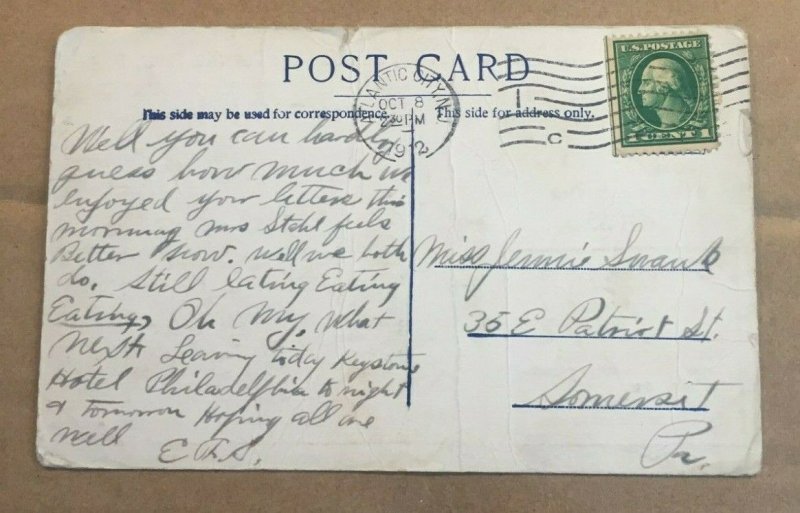 POST CARD
This side may be used for correspondence.
This side for address only.
ATLANTIC CITY, N.J.
OCT 8
2 30 PM
1912
1
C
U.S. POSTAGE
1 CENT 1
Well you can hardly
guess how much we
enjoyed your letters this
morning Mrs Stahl feels
Better now. Well we both
do. Still Eating Eating
Eating, Oh My, What
next Leaving today Keystone
Hotel Philadelphia to night
& Tomorrow Hoping all are
well
E F S.
Miss Jennie Swank
35 E Patriot St.
Somerset
Pa.